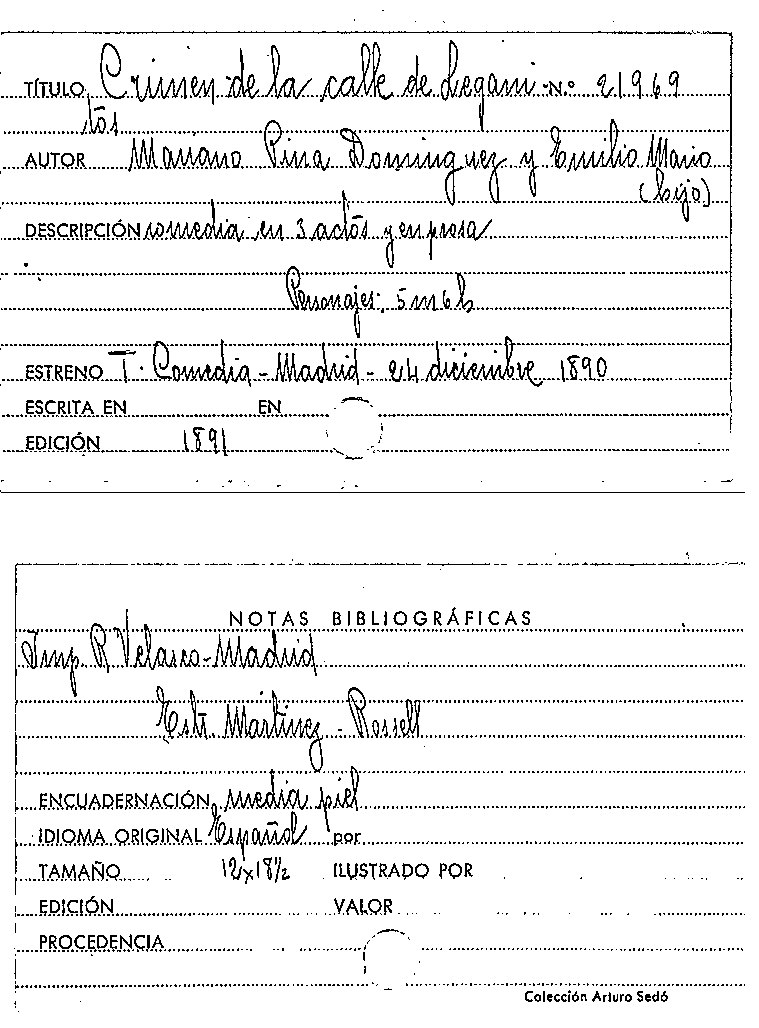 TÍTULO Crimen de la calle de Legani N.º 21969
tos
AUTOR Mariano Pina Dominguez y Emilio Mario
(hijo)
DESCRIPCIÓN comedia en 3 actos y en prosa
Personajes: 5 m 6 h
ESTRENO T. Comedia - Madrid - 24 diciembre 1890
ESCRITA EN EN
EDICIÓN 1891
NOTAS BIBLIOGRÁFICAS
Imp. R Velasco - Madrid
Estr. Martinez - Rossell
ENCUADERNACIÓN media piel
IDIOMA ORIGINAL Español por
TAMAÑO 12x18½ ILUSTRADO POR
EDICIÓN VALOR
PROCEDENCIA
Colección Arturo Sedó